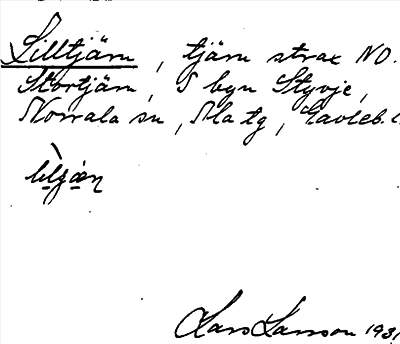 Lilltjärn, tjärn strax NO.
Stortjärn, S byn Styvje,
Norrala sn, Ala tg, Gävleb. l.
Lars Larsson 1931